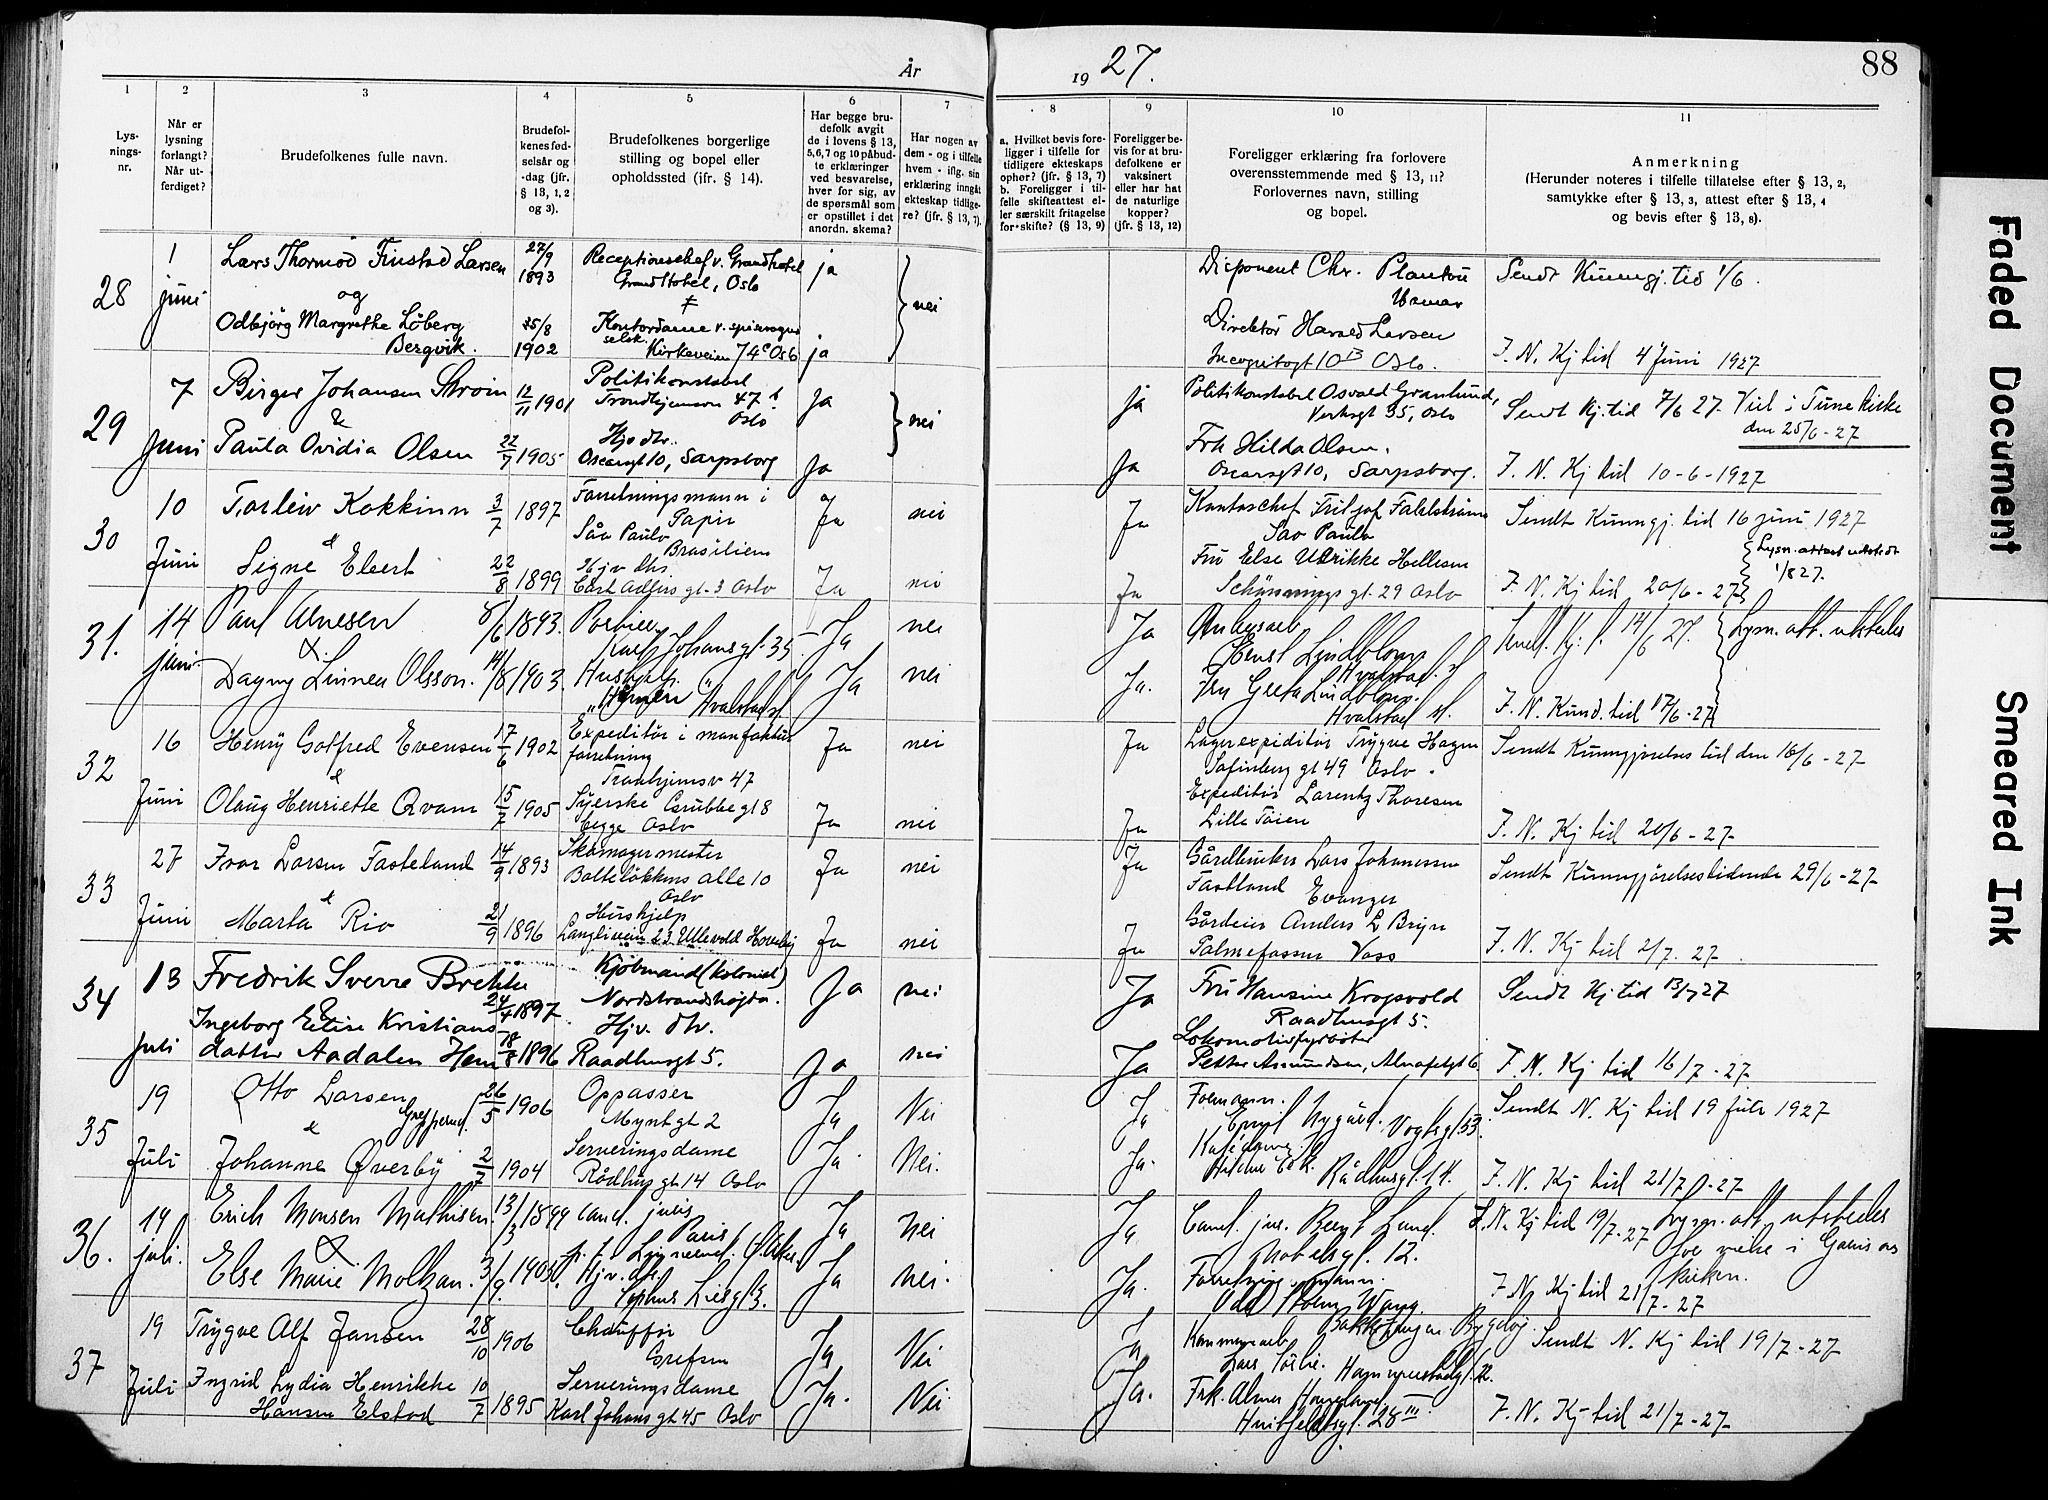 År
19 27.
88
1
2
3
4
5
6
7
8
9
10
11
Lys-
nings-
nr.
Når er
lysning
forlangt?
Når ut-
ferdiget?
Brudefolkenes fulle navn.
Brudefol-
kenes fød-
selsår og
-dag (jfr.
§ 13, 1, 2
og 3).
Brudefolkenes borgerlige
stilling og bopel eller
opholdssted (jfr. § 14).
Har begge bru-
defolk avgit
de i lovens § 13,
5,6,7 og 10 påbud-
te erklæringer
ved besvarelse,
hver for sig, av
de spørsmål som
er opstillet i det
anordn. skema?
Har nogen av
dem - og i tilfelle
hvem - iflg. sin
erklæring inngåt
ekteskap tidlige-
re? (jfr. § 13, 7).
a. Hvilket bevis fore-
ligger i tilfelle for
tidligere ekteskaps
ophør? (jfr. § 13, 7)
b. Foreligger i til-
felle skifteattest el-
ler særskilt fritagelse
for skifte? (§ 13, 9)
Foreligger be-
vis for at bru-
defolkene er
vaksinert
eller har hat
de naturlige
kopper?
(jfr. § 13, 12)
Foreligger erklæring fra forlovere
overensstemmende med § 13, 11?
Forlovernes navn, stilling
og bopel.
Anmerkning
(Herunder noteres i tilfelle tillatelse efter § 13, 2,
samtykke efter § 13, 3, attest efter § 13, 4
og bevis efter § 13, 8).
28
1
juni
Lars Thormod Finstad Larsen
og
Odbjörg Margrethe Löberg
Bergvik.
27/9
1893
25/8
1902
Receptionschef v. Grandhotel
Grand Hotel, Oslo
Kontordame v.
selsk.
Kirkeveien 74c Oslo
ja
ja
nei
Disponent Chr.
Direktör Harald Larsen
Oslo.
Sendt Kunngj. tid 1/6.
F. N. Kj tid 4 Juni 1927
29
7
Juni
Birger Johansen
&
Paula Ovidia Olsen
12/11 1901
22/7 1905
Politikonstabel
Trondhjemsvn 47 b
Oslo
Hjv. dtr.
Oscarsgt 10, Sarpsborg
Ja
Ja
nei
ja
Ja
Politikonstabel Osvald Granlund,
35, Oslo
Frk Hilda Olsen.
Oscarsgt 10, Sarpsborg.
Sendt Kj. tid 7/6 27. Viel i Tune Kirke
den 25/6 - 27
F. N. Kj tid 10-6-1927
30
10
Juni
Torleiv Kokkinn
&
Signe Ebert
3/7 1897
22/8 1899
Forretningsmann i
Papir
São Paulo
Brasilien
Hjv dtr
gt. 3 Oslo
Ja
Ja
nei
nei
Ja
Ja
Kontorchef Fritjof
Sao Paulo
Fru Else Ulrikke Hellesen
Schönnings gt. 29 Oslo
Sendt Kunngj. tid 16 juni 1927
F. N. Kj tid 20/6 - 27
Lysn. attest utstedt
1/8 27.
31.
14
juni.
Paul Arnesen
&
Dagny Linnea Olsson.
8/6 1893.
14/8 1903.
Portier
Karl Johansgt. 35
Hushjelp.
Hvalstad st
Ja
Ja
nei
nei
Ja
Ja.
Lindblom
Hvalstad st
Fru Greta Lindblom.
Hvalstad st.
Sendt. Kj. t. 14/6 27.
Lysn. att. utstedes
F. N. Kund. tid 17/6 - 27
32
16
Juni
Henry Gotfred Evensen
&
Olaug Henriette Qvam
17/6 1902
15/7 1905
Expeditör i manfaktur
forretning
Tronhjemsv 47
Syerske Grubbegt 8
begge Oslo
Ja
Ja
nei
nei
Ja
Ja
Lagerexpeditör Trygve Hagen
Sofienberg gt 49 Oslo.
Expeditör Larentz Thoresen
Lille Töien
Sendt Kunngjörelses tid den 16/6 - 27
F. N. Kj tid 20/6 - 27
33
27
Juni
Ivar Larsen Fasteland
&
Marta Rio
14/9 1893
21/9 1896
Skomagermester
Bolteløkkens alle 10
Oslo
Hushjelp
Langliveien 23 Ullevold Haveby
Ja
Ja
nei
nei
Ja
Ja
Gårdbruker Lars Johanessen
Fastland
Evanger
Gårdeier Anders L Bryn
Voss
Sendt Kunngjörelsestidende 29/6 - 27
F. N. Kj tid 2/7. 27.
34
13
Juli
Fredrik Sverre Brekke
&
Ingeborg Elise Kristians
datter Aadalen Hem
24/4 1897
18/8 1896
Kjöbmand (kolonial)
Nordstrandshögda.
Hjv. dtr.
Raadhusgt 5.
Ja
Ja
nei
nei
Ja
Ja
Fru Hansine Krogsvold
Raadhusgt 5.
Lokomotivfyrböter
Petter Asmundsen, Almafetgt 6
Sendt Kj tid 13/7 27
F. N. Kj tid 16/7 - 27
35
19
Juli
Otto Larsen
&
Johanne Øverby
26/5 1906
2/7 1904
Oppasser
Myntgt 2
Serveringsdame
Rådhusgt 14 Oslo
Ja
Ja.
Nei
Nei.
Ja
Ja.
Formann.
Nygård. Vogtsgt 53.
Rådhusgt. 14.
Sendt N. Kj tid 19 Juli 1927
F. N. Kj tid 21/7 - 27
36.
19
juli.
Erich Monsen Mathisen.
&
Else Marie Molzau.
13/3 1899
3/9 1903.
cand. juris
Paris
Hjv. dtr.
Sophus Liesgt 3.
Ja
Ja
Nei
Nei.
Ja
Ja.
Cand. jur. Bernt Lund.
gt. 12.
Forretningsmann.
Odd Holm Wang.
Bygdøy.
F. N. Kj tid 19/7 - 27 Lysn. att. utstedes
for vielse i Garnisons
kirken.
F. N. Kj tid 21/7 - 27
37
19
Juli
Trygve Alf Jansen
Ingrid Lydia Henrikke
Hansen Elstad
28/10 1906
10/7 1895
Chauffør
Grefsen
Serveringsdame
Karl Johans gt 45 Oslo
Ja
Ja.
Nei
Nei
Ja
Ja.
Lars
Frk.
Huitfeldtsgt. 28 III
Sendt N. Kj tid 19/7 - 27
F. N. Kj tid 21/7 - 27
Faded Document
Smeared Ink